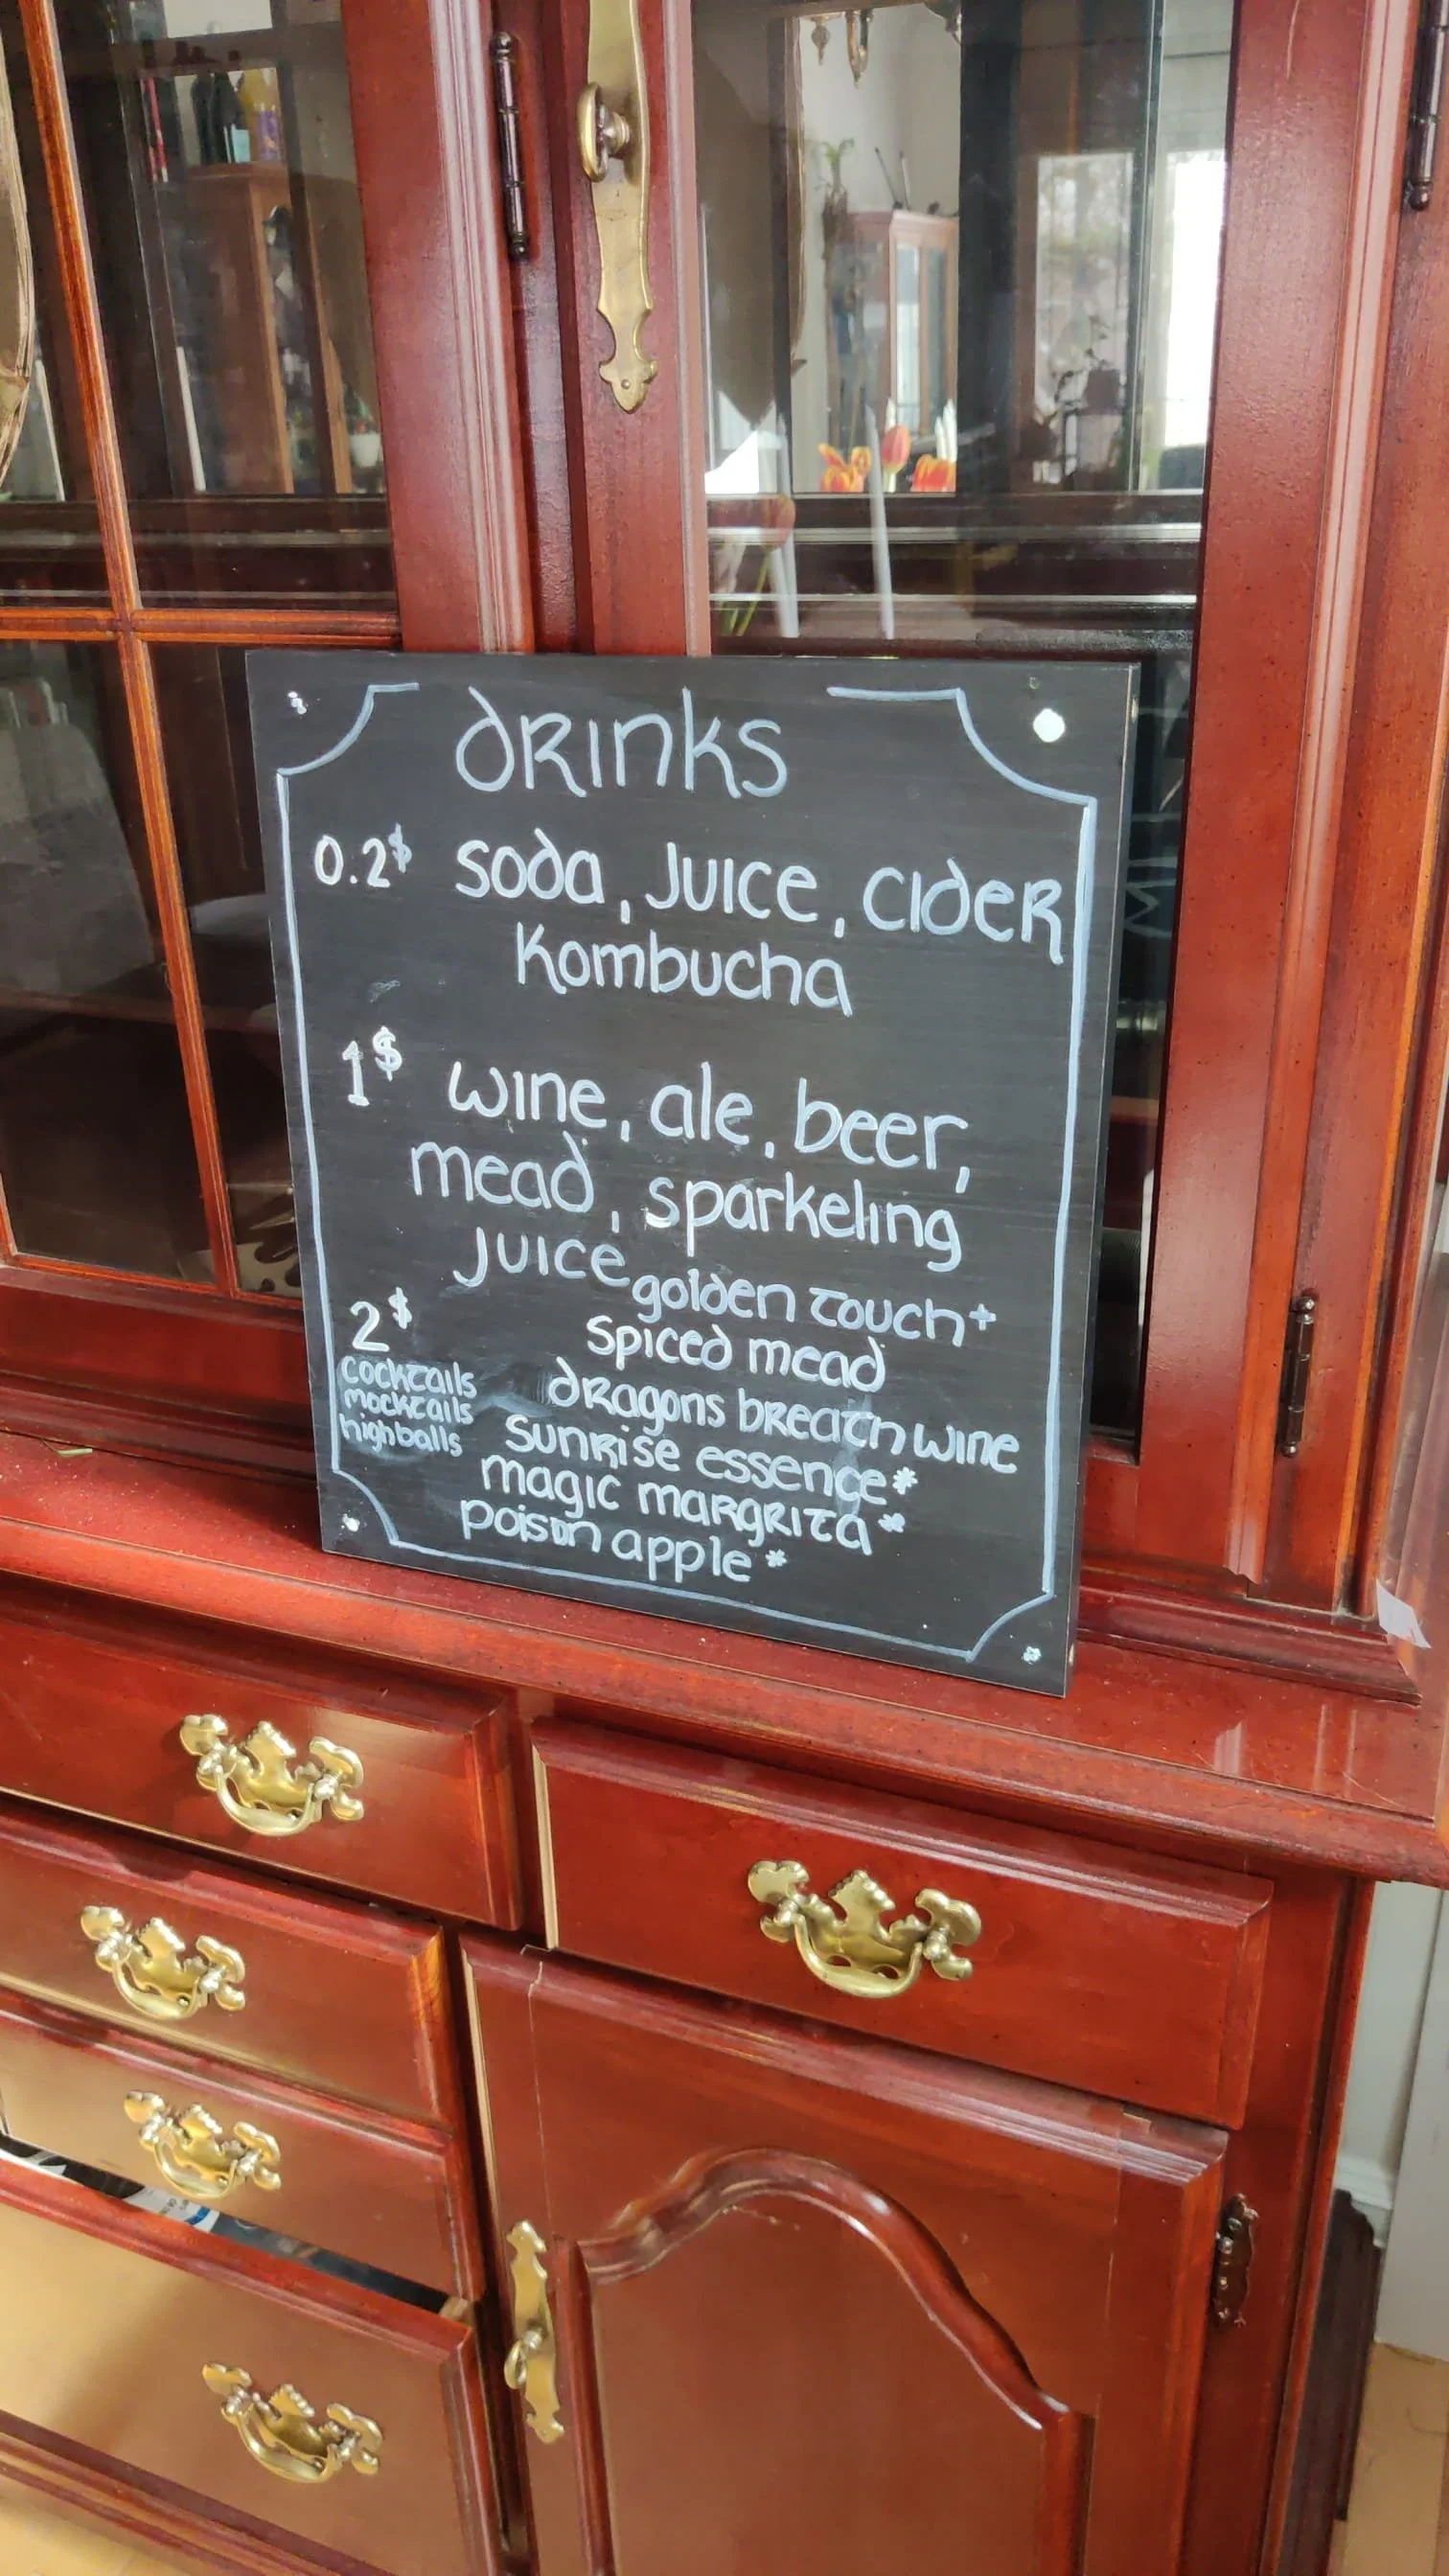 dRinks
0.2$ soda, Juice, cideR
Kombucha
1$ wine, ale, beer,
mead, sparkeling
Juice
golden touch+
2$ Spiced mead
cocktails dRagons bReath wine
mocktails SunRise essence*
highballs magic maRgRita*
poison apple*